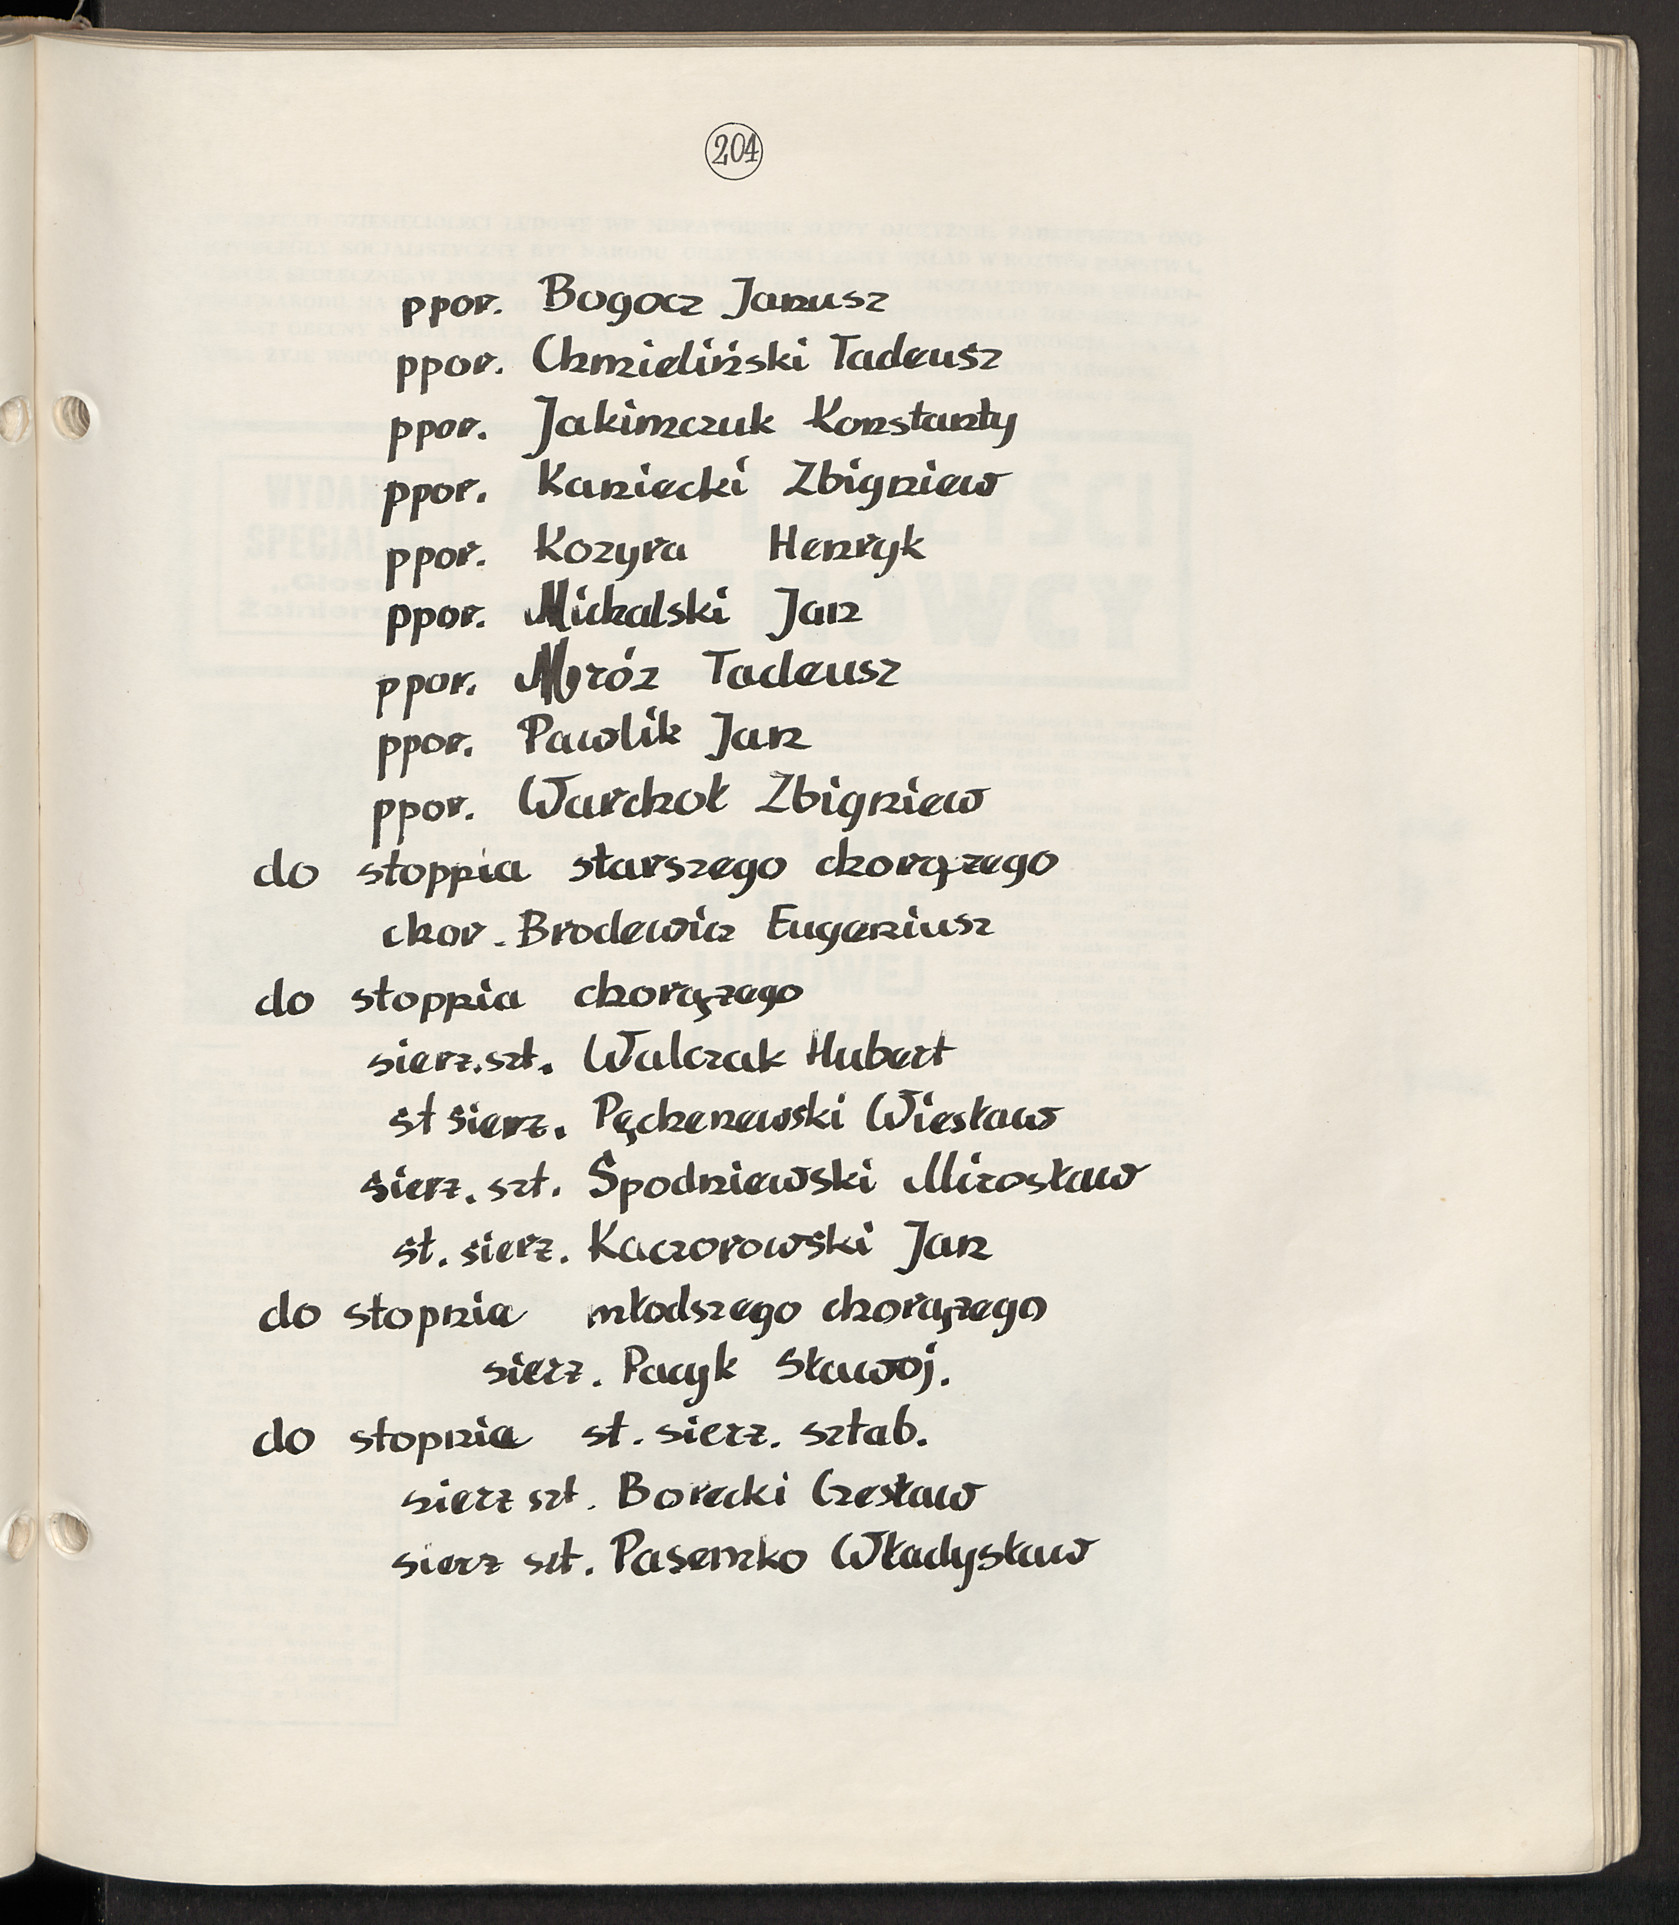 204
ppor. Bogocz Janusz
ppor. Chmieliński Tadeusz
ppor. Jakimczuk Konstanty
ppor. Kaniecki Zbigniew
ppor. Kozyra Henryk
ppor. Michalski Jan
ppor. Mróz Tadeusz
ppor. Pawlik Jan
ppor. Warchoł Zbigniew
do stopnia starszego chorążego
chor. Brodewicz Eugeniusz
do stopnia chorążego
sierz.szt. Walczak Hubert
st sierz. Pęcherzewski Wiesław
sierz. szt. Spodniewski Mirosław
st. sierz. Kaczorowski Jan
do stopnia młodszego chorążego
sierz. Pacyk Sławoj.
do stopnia st. sierz. sztab.
sierz szt. Borecki Czesław
sierz szt. Władysław